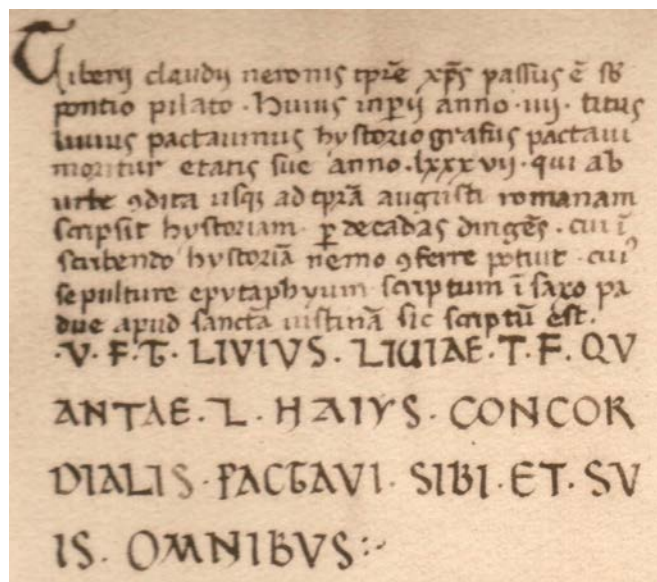 Tiberij claudij neronis tp̄re xp̄s passus ē sb̄
pontio pilato · Huius inꝑij anno · iiij · titus
liuius pactauinus hystoriografus pactaui
moritur etatis sue anno · lxxxvij · qui ab
urbe ꝯdita usqꝫ ad tp̄rā augusti romanam
scripsit hystoriam · ꝑ decadas dingēs · cui ī
scribendo hystoriā nemo ꝯferre potiut · cuiꝰ
sepulture epytaphyum scriptum ī saxo pa
due apud sanctā iustinā sic scriptū est ·
· V · F · T · LIVIVS · LIVIAE · T · F · QV
ANTAE · L · HAIYS · CONCOR
DIALIS · PACTAVI · SIBI · ET · SV
IS · OMNIBVS :·